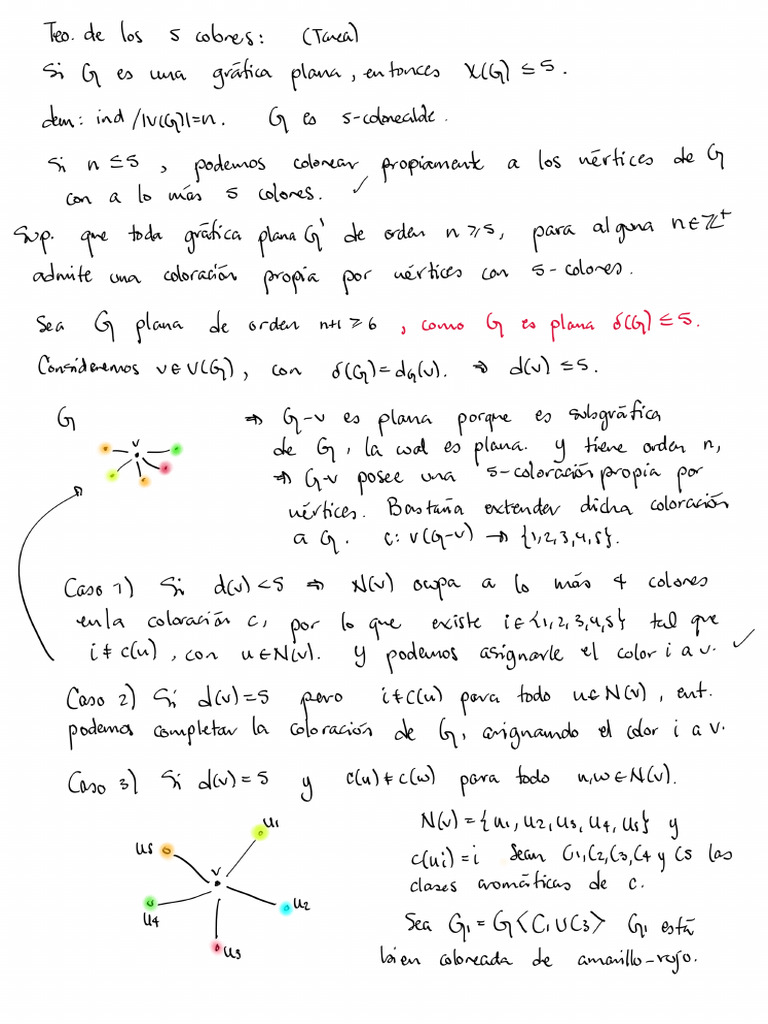 Teo. de los 5 cobres: (Tarea)
Si G es una gráfica plana, entonces χ(G) ≤ 5.
dem: ind /|V(G)|=n. G es 5-coloreable.
Si n ≤ 5, podemos colorear propiamente a los vértices de G
con a lo más 5 colores. ✓
Sup. que toda gráfica plana G' de orden n ≥ 5, para alguna n ∈ ℤ⁺
admite una coloración propia por vértices con 5-colores.
Sea G plana de orden n+1 ≥ 6, como G es plana δ(G) ≤ 5.
Consideremos v ∈ V(G), con δ(G) = d_G(v). ⇒ d(v) ≤ 5.
G
v
⇒ G-v es plana porque es subgráfica
de G, la cual es plana. y tiene orden n,
⇒ G-v posee una 5-coloración propia por
vértices. Bastaría extender dicha coloración
a G. c: V(G-v) → {1,2,3,4,5}.
Caso 1) Si d(v) < 5 ⇒ N(v) ocupa a lo más 4 colores
en la coloración c, por lo que existe i ∈ {1,2,3,4,5} tal que
i ≠ c(u), con u ∈ N(v). y podemos asignarle el color i a v. ✓
Caso 2) Si d(v) = 5 pero i ≠ c(u) para todo u ∈ N(v), ent.
podemos completar la coloración de G, asignando el color i a v.
Caso 3) Si d(v) = 5 y c(u) ≠ c(w) para todo u,w ∈ N(v).
u1
u5
v
u2
u4
u3
N(v) = {u1, u2, u3, u4, u5} y
c(ui) = i Sean C1, C2, C3, C4 y C5 las
clases cromáticas de c.
Sea G1 = G⟨C1 ∪ C3⟩ G1 está
bien coloreada de amarillo-rojo.